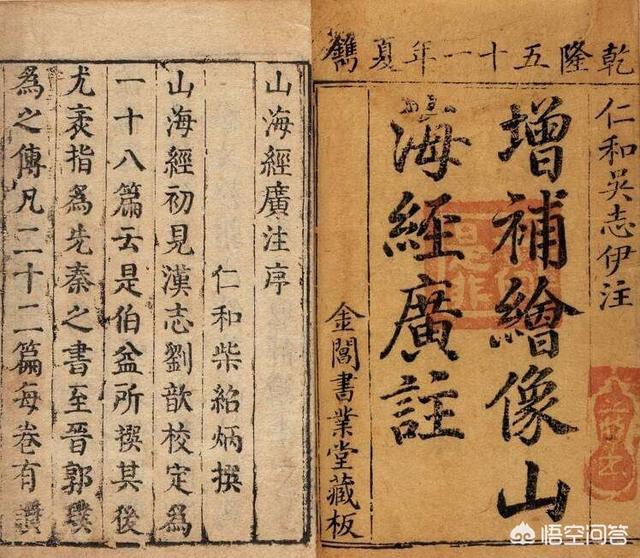 乾隆五十一年夏鐫
仁和吳志伊注
增補繪像山
海經廣註
金閶書業堂藏板
山海經廣注序
仁和柴紹炳撰
山海經初見漢志劉歆校定為
一十八篇云是伯益所撰其後
尤袤指為先秦之書至晉郭璞
為之傳凡二十二篇每卷有讚
悟空问答